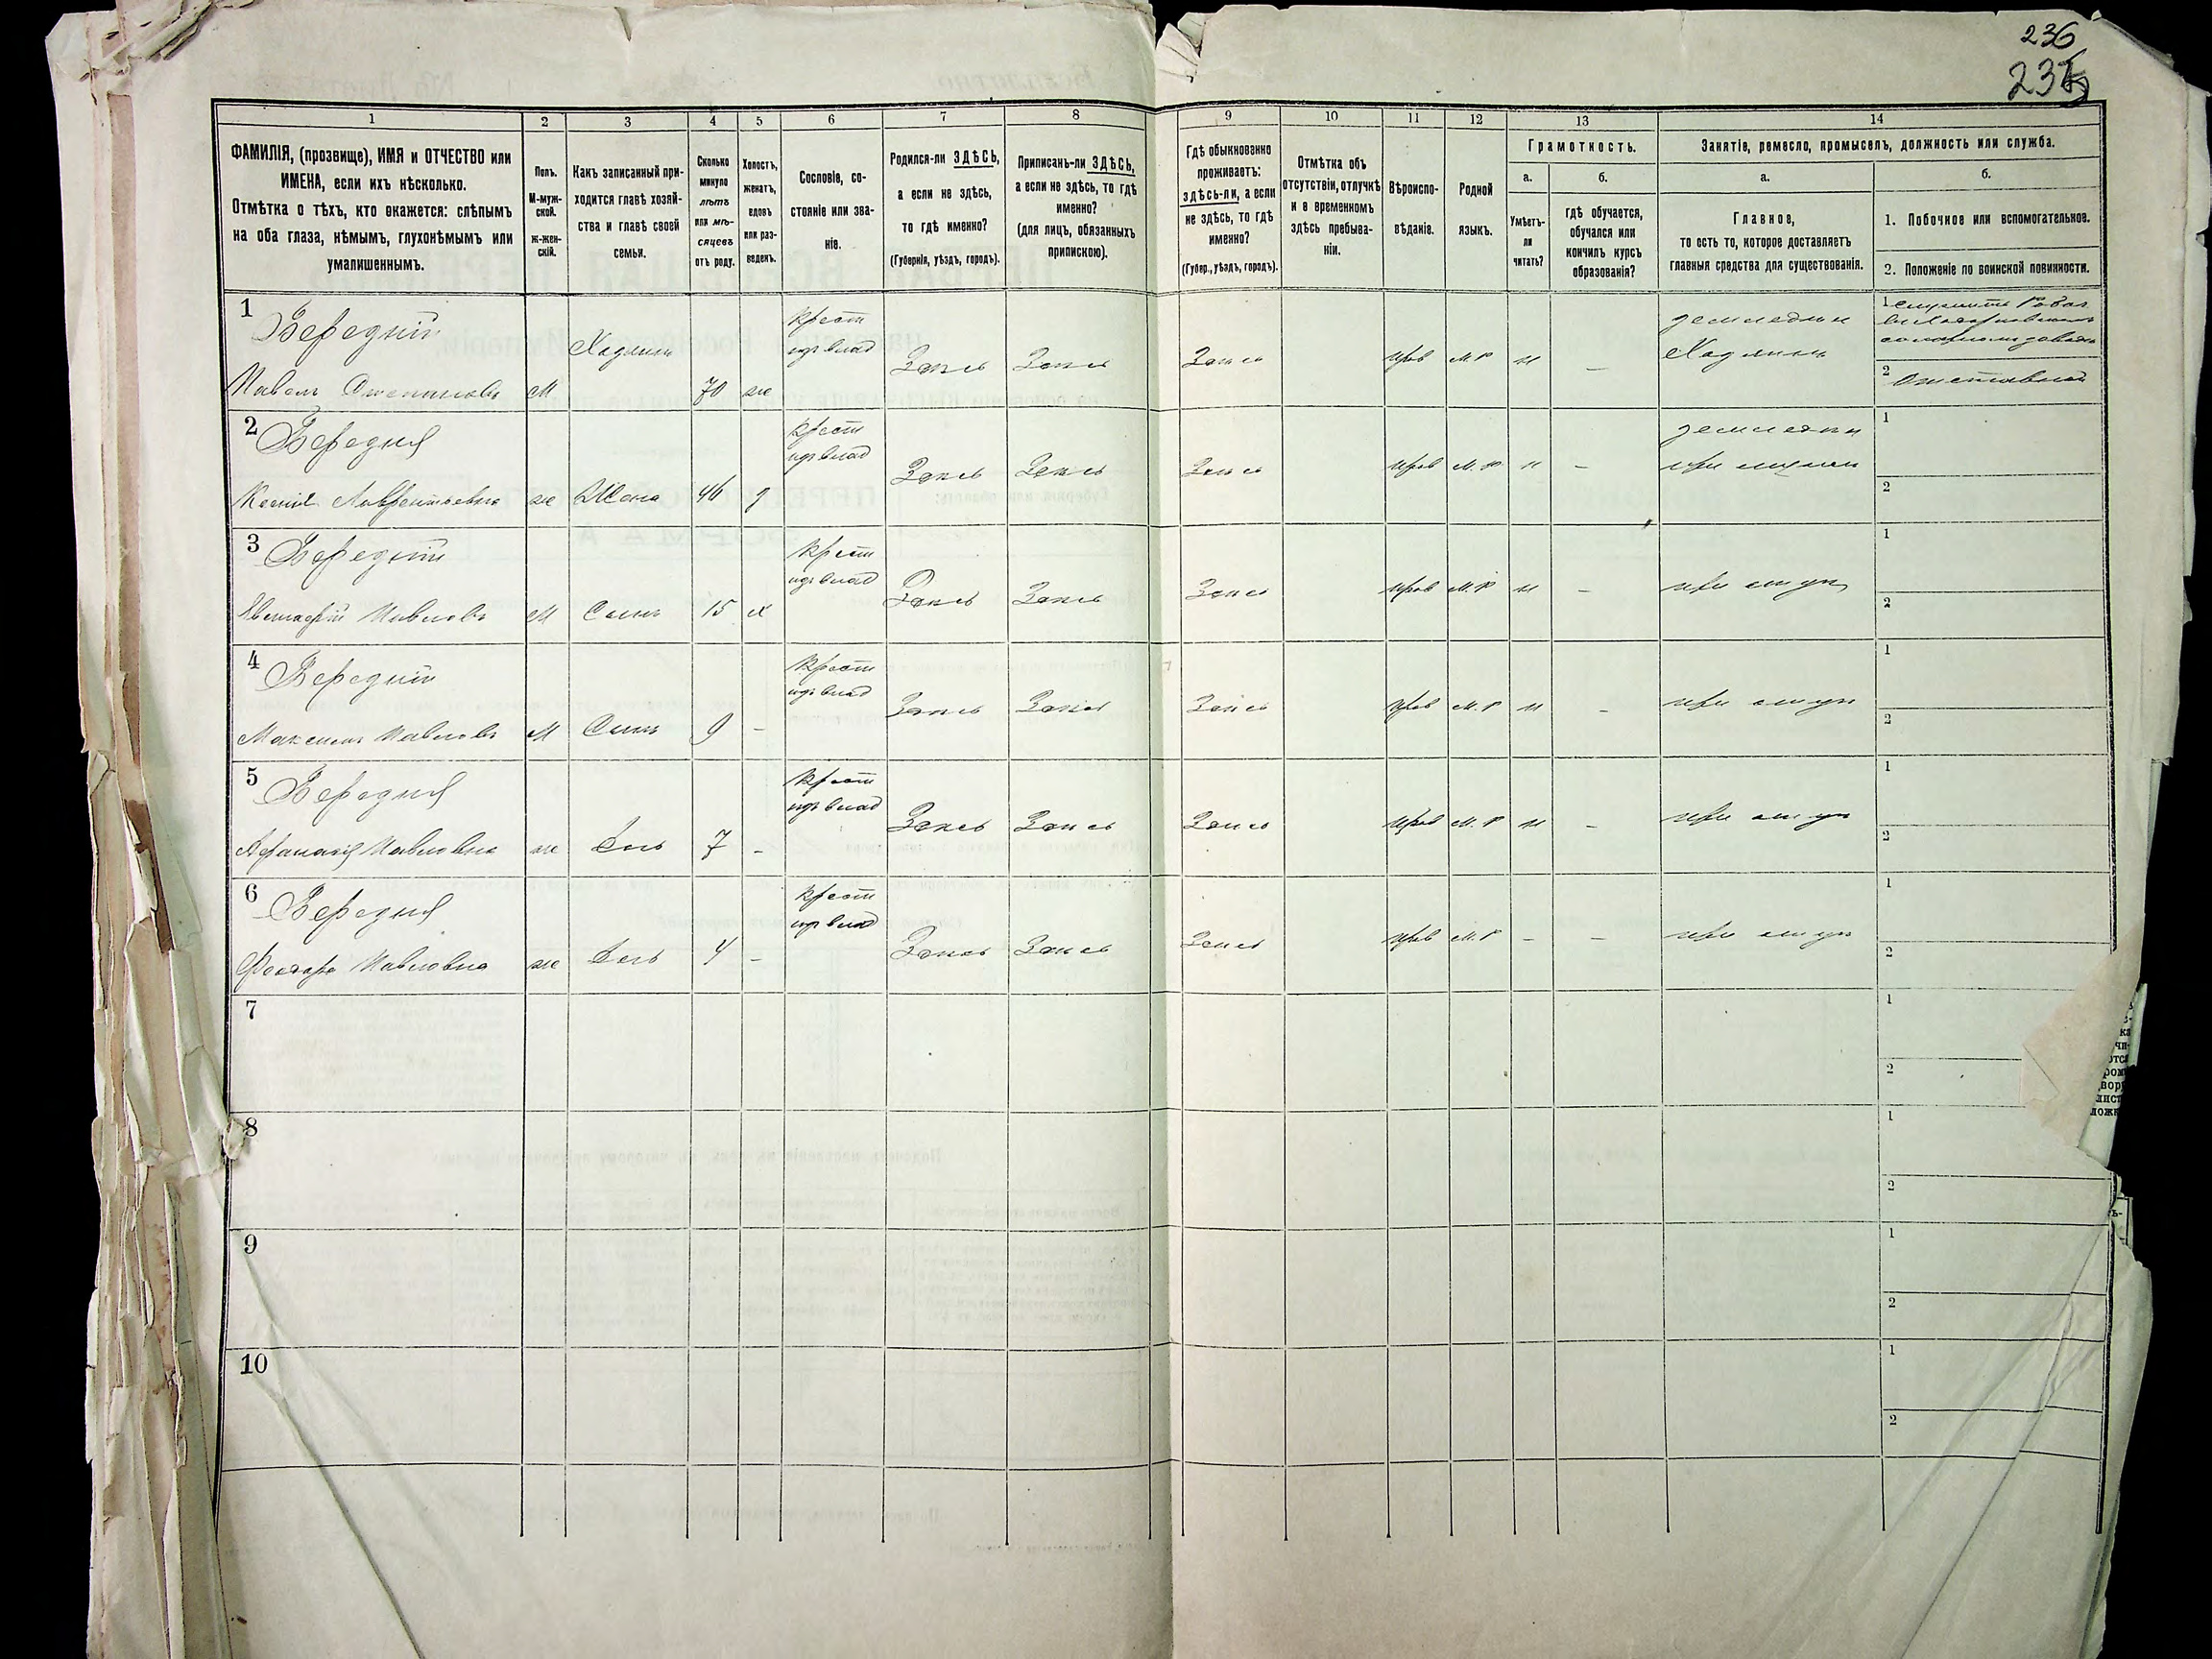 236
235
1
2
3
4
5
6
7
8
9
10
11
12
13
14
ФАМИЛІЯ, (прозвище), ИМЯ и ОТЧЕСТВО или
ИМЕНА, если ихъ нѣсколько.
Отмѣтка о тѣхъ, кто окажется: слѣпымъ
на оба глаза, нѣмымъ, глухонѣмымъ или
умалишеннымъ.
Полъ.
М-муж-
ской.
ж-жен-
скій.
Какъ записанный при-
ходится главѣ хозяй-
ства и главѣ своей
семьи.
Сколько
минуло
лѣтъ
или мѣ-
сяцевъ
отъ роду.
Холостъ,
женатъ,
вдовъ
или раз-
веденъ.
Сословіе, со-
стояніе или зва-
ніе.
Родился-ли ЗДѢСЬ,
а если не здѣсь,
то гдѣ именно?
(Губернія, уѣздъ, городъ).
Приписанъ-ли ЗДѢСЬ,
а если не здѣсь, то гдѣ
именно?
(для лицъ, обязанныхъ
припискою).
Гдѣ обыкновенно
проживаетъ:
здѣсь-ли, а если
не здѣсь, то гдѣ
именно?
(Губер., уѣздъ, городъ).
Отмѣтка объ
отсутствіи, отлучкѣ
и о временномъ
здѣсь пребыва-
ніи.
Вѣроиспо-
вѣданіе.
Родной
языкъ.
Грамотность.
а.
Умѣетъ-
ли
читать?
б.
гдѣ обучается,
обучался или
кончилъ курсъ
образованія?
Занятіе, ремесло, промыселъ, должность или служба.
а.
Главное,
то есть то, которое доставляетъ
главныя средства для существованія.
б.
1. Побочное или вспомогательное.
2. Положеніе по воинской повинности.
1
Бередній
Павелъ Степановъ
м
Хозяинъ
70
ж
крест
изъ влад
Здѣсь
Здѣсь
Здѣсь
прав
м. р
н
–
земледѣл
Хозяинъ
1
2
Отставной
2
Бередня
Ксенія Лаврентьевна
ж
Жена
46
з
крест
изъ влад
Здѣсь
Здѣсь
Здѣсь
прав
м. р
н
–
земледѣл
при мужѣ
1
2
3
Бередній
Павловъ
м
Сынъ
15
х
крест
изъ влад
Здѣсь
Здѣсь
Здѣсь
прав
м. р
н
–
при отцѣ
1
2
4
Бередній
Максимъ Павловъ
м
Сынъ
9
–
крест
изъ влад
Здѣсь
Здѣсь
Здѣсь
прав
м. р
н
–
при отцѣ
1
2
5
Бередня
Афанасія Павловна
ж
Дочь
7
–
крест
изъ влад
Здѣсь
Здѣсь
Здѣсь
прав
м. р
н
–
при отцѣ
1
2
6
Бередня
Феодора Павловна
ж
Дочь
4
–
крест
изъ влад
Здѣсь
Здѣсь
Здѣсь
прав
м. р
–
–
при отцѣ
1
2
7
1
2
8
1
2
9
1
2
10
1
2